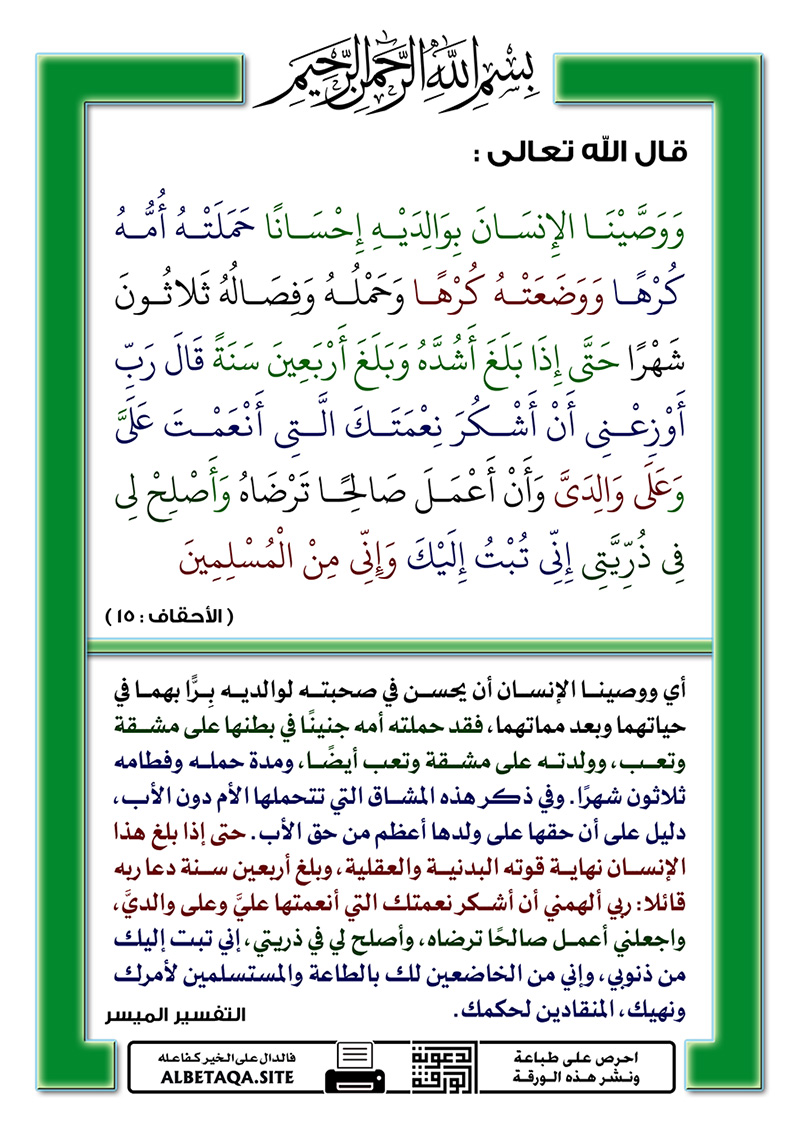 بِسْمِ اللَّهِ الرَّحْمَٰنِ الرَّحِيمِ
قال الله تعالى :
وَوَصَّيْنَا الإِنسَانَ بِوَالِدَيْهِ إِحْسَانًا حَمَلَتْهُ أُمُّهُ
كُرْهًا وَوَضَعَتْهُ كُرْهًا وَحَمْلُهُ وَفِصَالُهُ ثَلاثُونَ
شَهْرًا حَتَّى إِذَا بَلَغَ أَشُدَّهُ وَبَلَغَ أَرْبَعِينَ سَنَةً قَالَ رَبِّ
أَوْزِعْنِى أَنْ أَشْكُرَ نِعْمَتَكَ الَّتِى أَنْعَمْتَ عَلَىَّ
وَعَلَى وَالِدَىَّ وَأَنْ أَعْمَلَ صَالِحًا تَرْضَاهُ وَأَصْلِحْ لِى
فِى ذُرِّيَّتِى إِنِّى تُبْتُ إِلَيْكَ وَإِنِّى مِنْ الْمُسْلِمِينَ
( الأحقاف : ١٥ )
أي ووصينا الإنسان أن يحسن في صحبته لوالديه بِرًّا بهما في
حياتهما وبعد مماتهما، فقد حملته أمه جنينًا في بطنها على مشقة
وتعب، وولدته على مشقة وتعب أيضًا، ومدة حمله وفطامه
ثلاثون شهرًا. وفي ذكر هذه المشاق التي تتحملها الأم دون الأب،
دليل على أن حقها على ولدها أعظم من حق الأب. حتى إذا بلغ هذا
الإنسان نهاية قوته البدنية والعقلية، وبلغ أربعين سنة دعا ربه
قائلا: ربي ألهمني أن أشكر نعمتك التي أنعمتها عليَّ وعلى والديَّ،
واجعلني أعمل صالحًا ترضاه، وأصلح لي في ذريتي، إني تبت إليك
من ذنوبي، وإني من الخاضعين لك بالطاعة والمستسلمين لأمرك
ونهيك، المنقادين لحكمك.
التفسير الميسر
احرص على طباعة
ونشر هذه الورقة
الورقة الدعوية
فالدال على الخير كفاعله
ALBETAQA.SITE